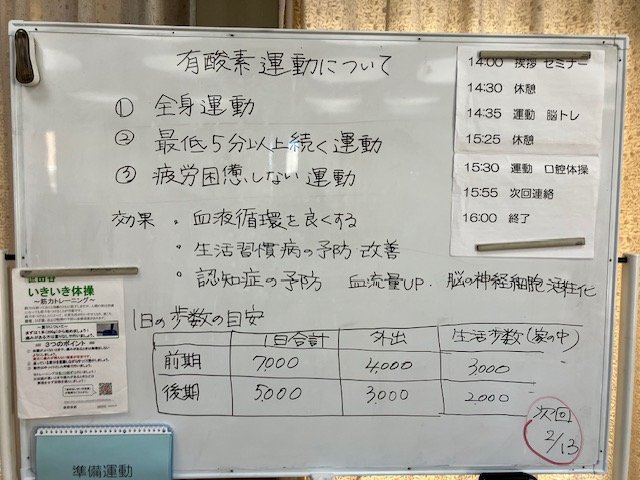 有酸素運動について
① 全身運動
② 最低5分以上続く運動
③ 疲労困憊しない運動
効果 ・血液循環を良くする
・生活習慣病の予防 改善
・認知症の予防 血流量UP. 脳の神経細胞活性化
1日の歩数の目安
1日合計 外出 生活歩数(家の中)
前期 7,000 4,000 3,000
後期 5,000 3,000 2,000
次回
2/13
14:00 挨拶 セミナー
14:30 休憩
14:35 運動 脳トレ
15:25 休憩
15:30 運動 口腔体操
15:55 次回連絡
16:00 終了
世田谷
いきいき体操
～筋力トレーニング～
3つのポイント
準備運動